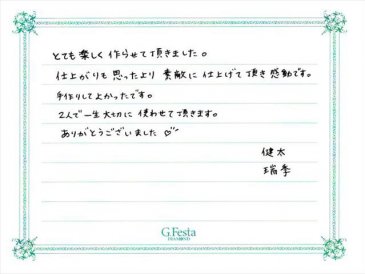 とても楽しく作らせて頂きました。
仕上がりも思ったより素敵に仕上げて頂き感動です。
手作りしてよかったです。
2人で一生大切に使わせて頂きます。
ありがとうございました♡
健太
瑞季
G.Festa
DIAMOND